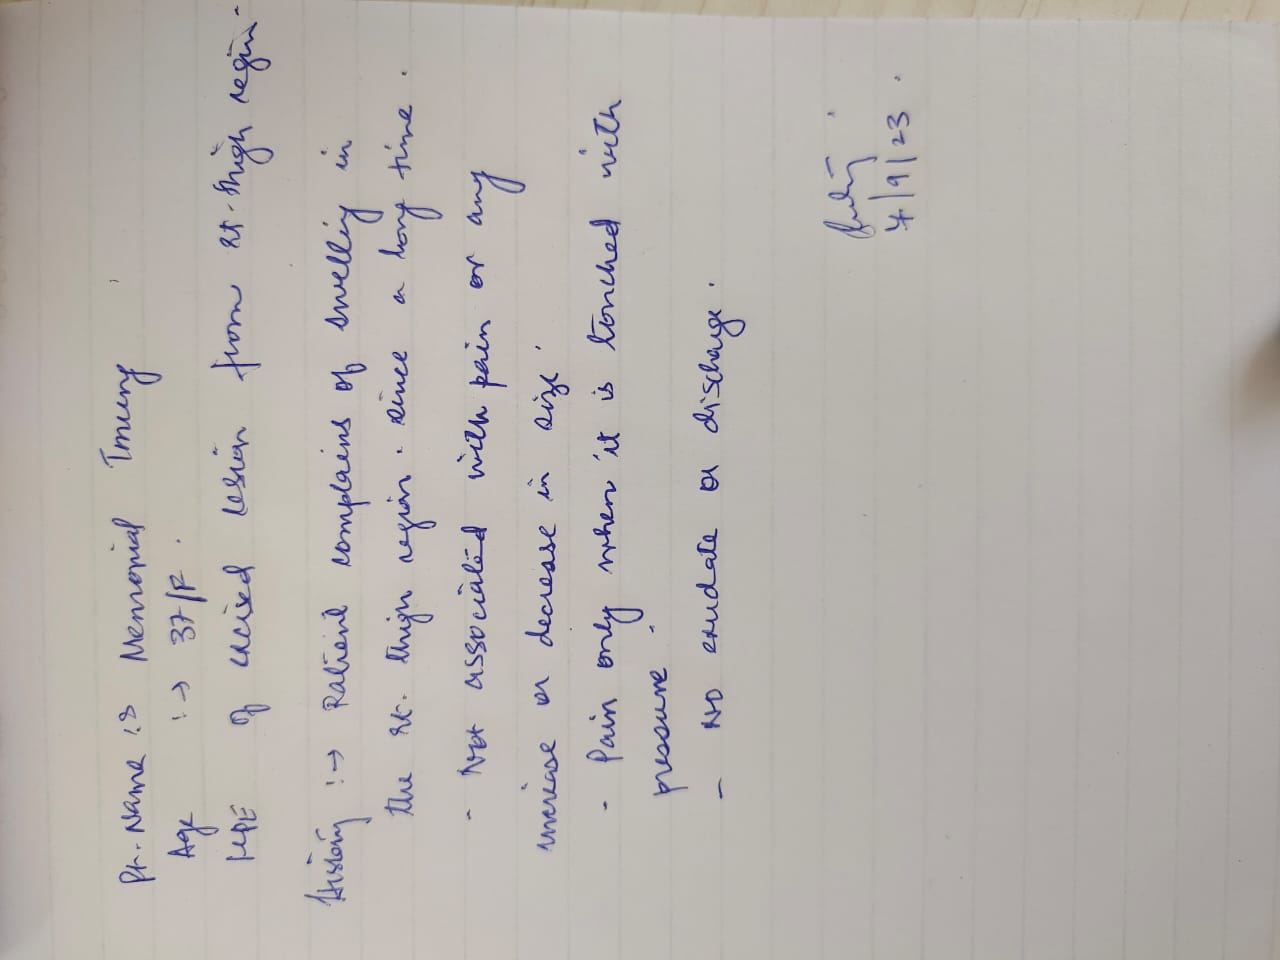 Pt. Name is Memorial Tmung
Age :→ 37/F.
HPE of excised lesion from rt. thigh region -
History :→ Patient complains of swelling in
the rt. thigh region. since a long time.
- Not associated with pain or any
increase or decrease in size.
- Pain only when it is touched with
pressure.
- No exudate or discharge.
4/9/23.